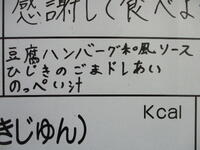 感謝して食べよ
豆腐ハンバーグ和風ソース
ひじきのごまドレあい
のっぺい汁
Kcal
きじゅん)